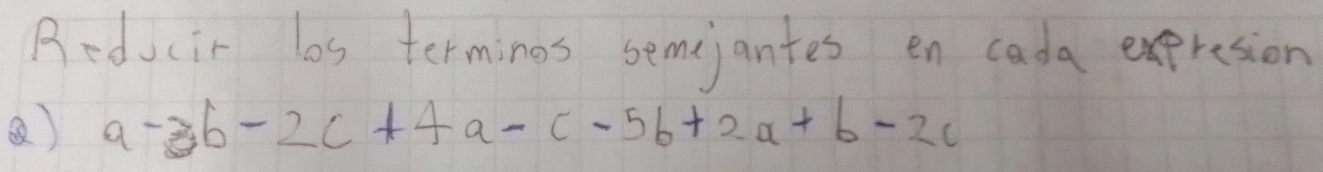 Reducir los terminos semejantes en cada expresion
a) a-3b-2c+4a-c-5b+2a+b-2c